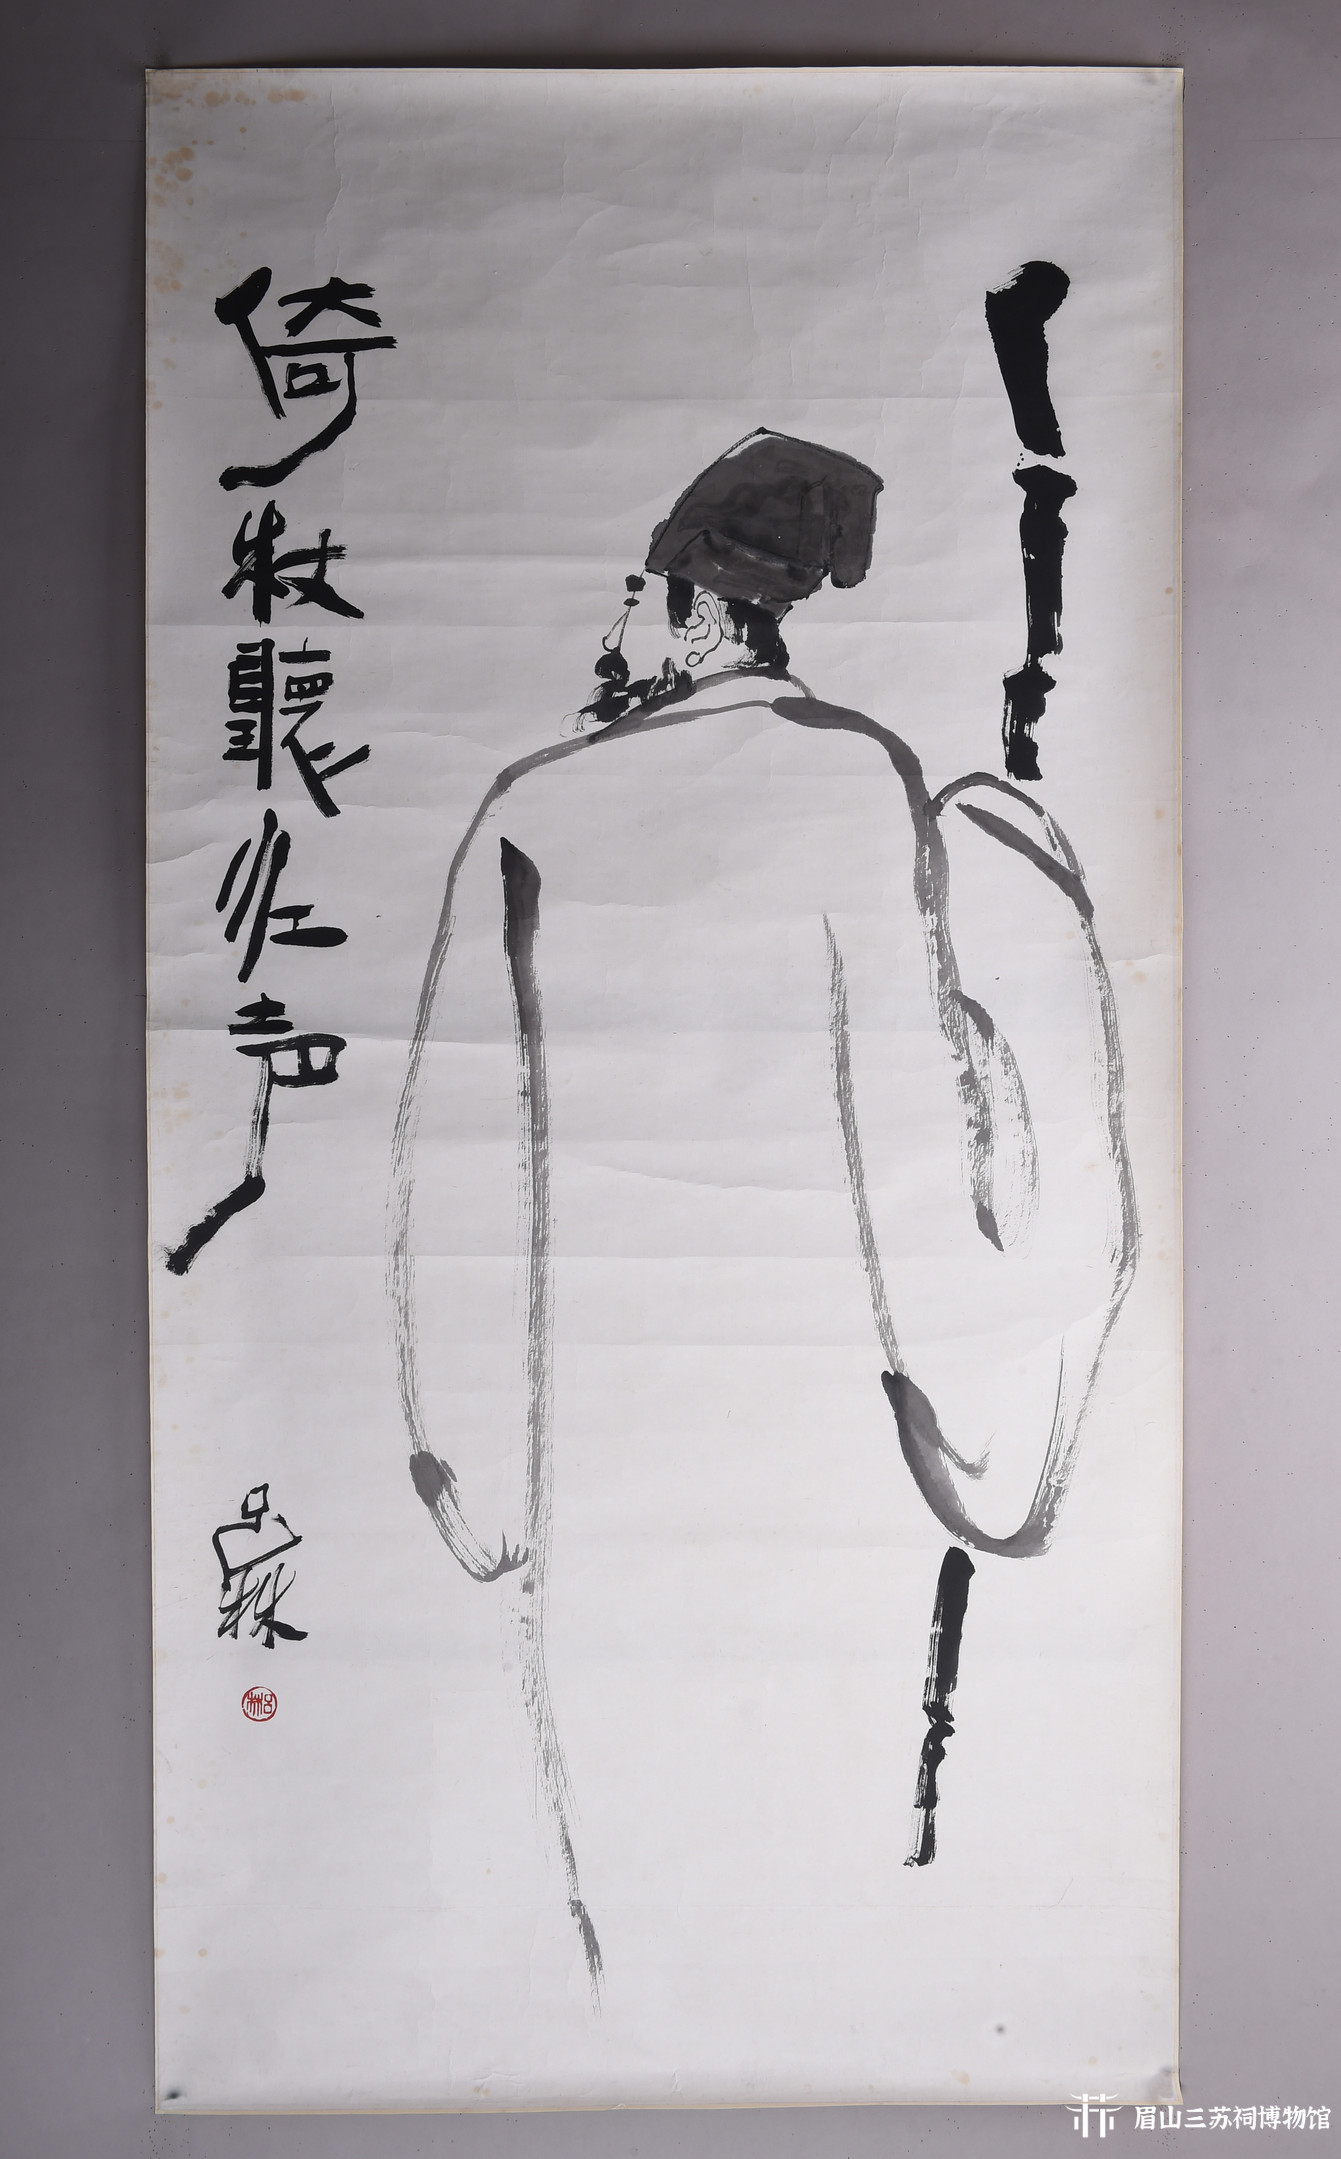 倚杖聽江声
吕林
吕林
眉山三苏祠博物馆